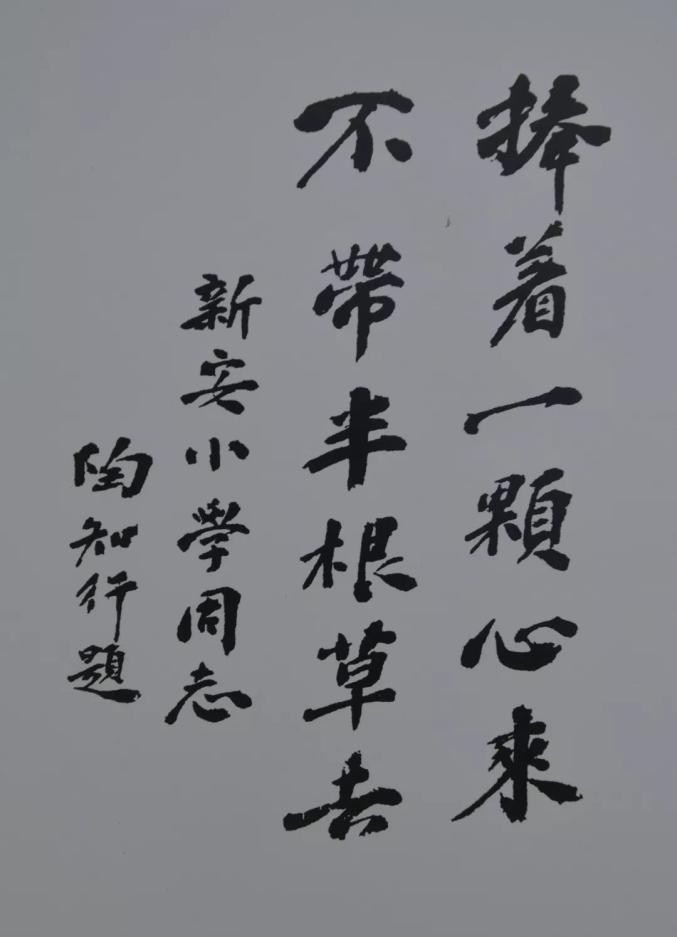 捧着一顆心來
不帶半根草去
新安小學周志
陶知行題